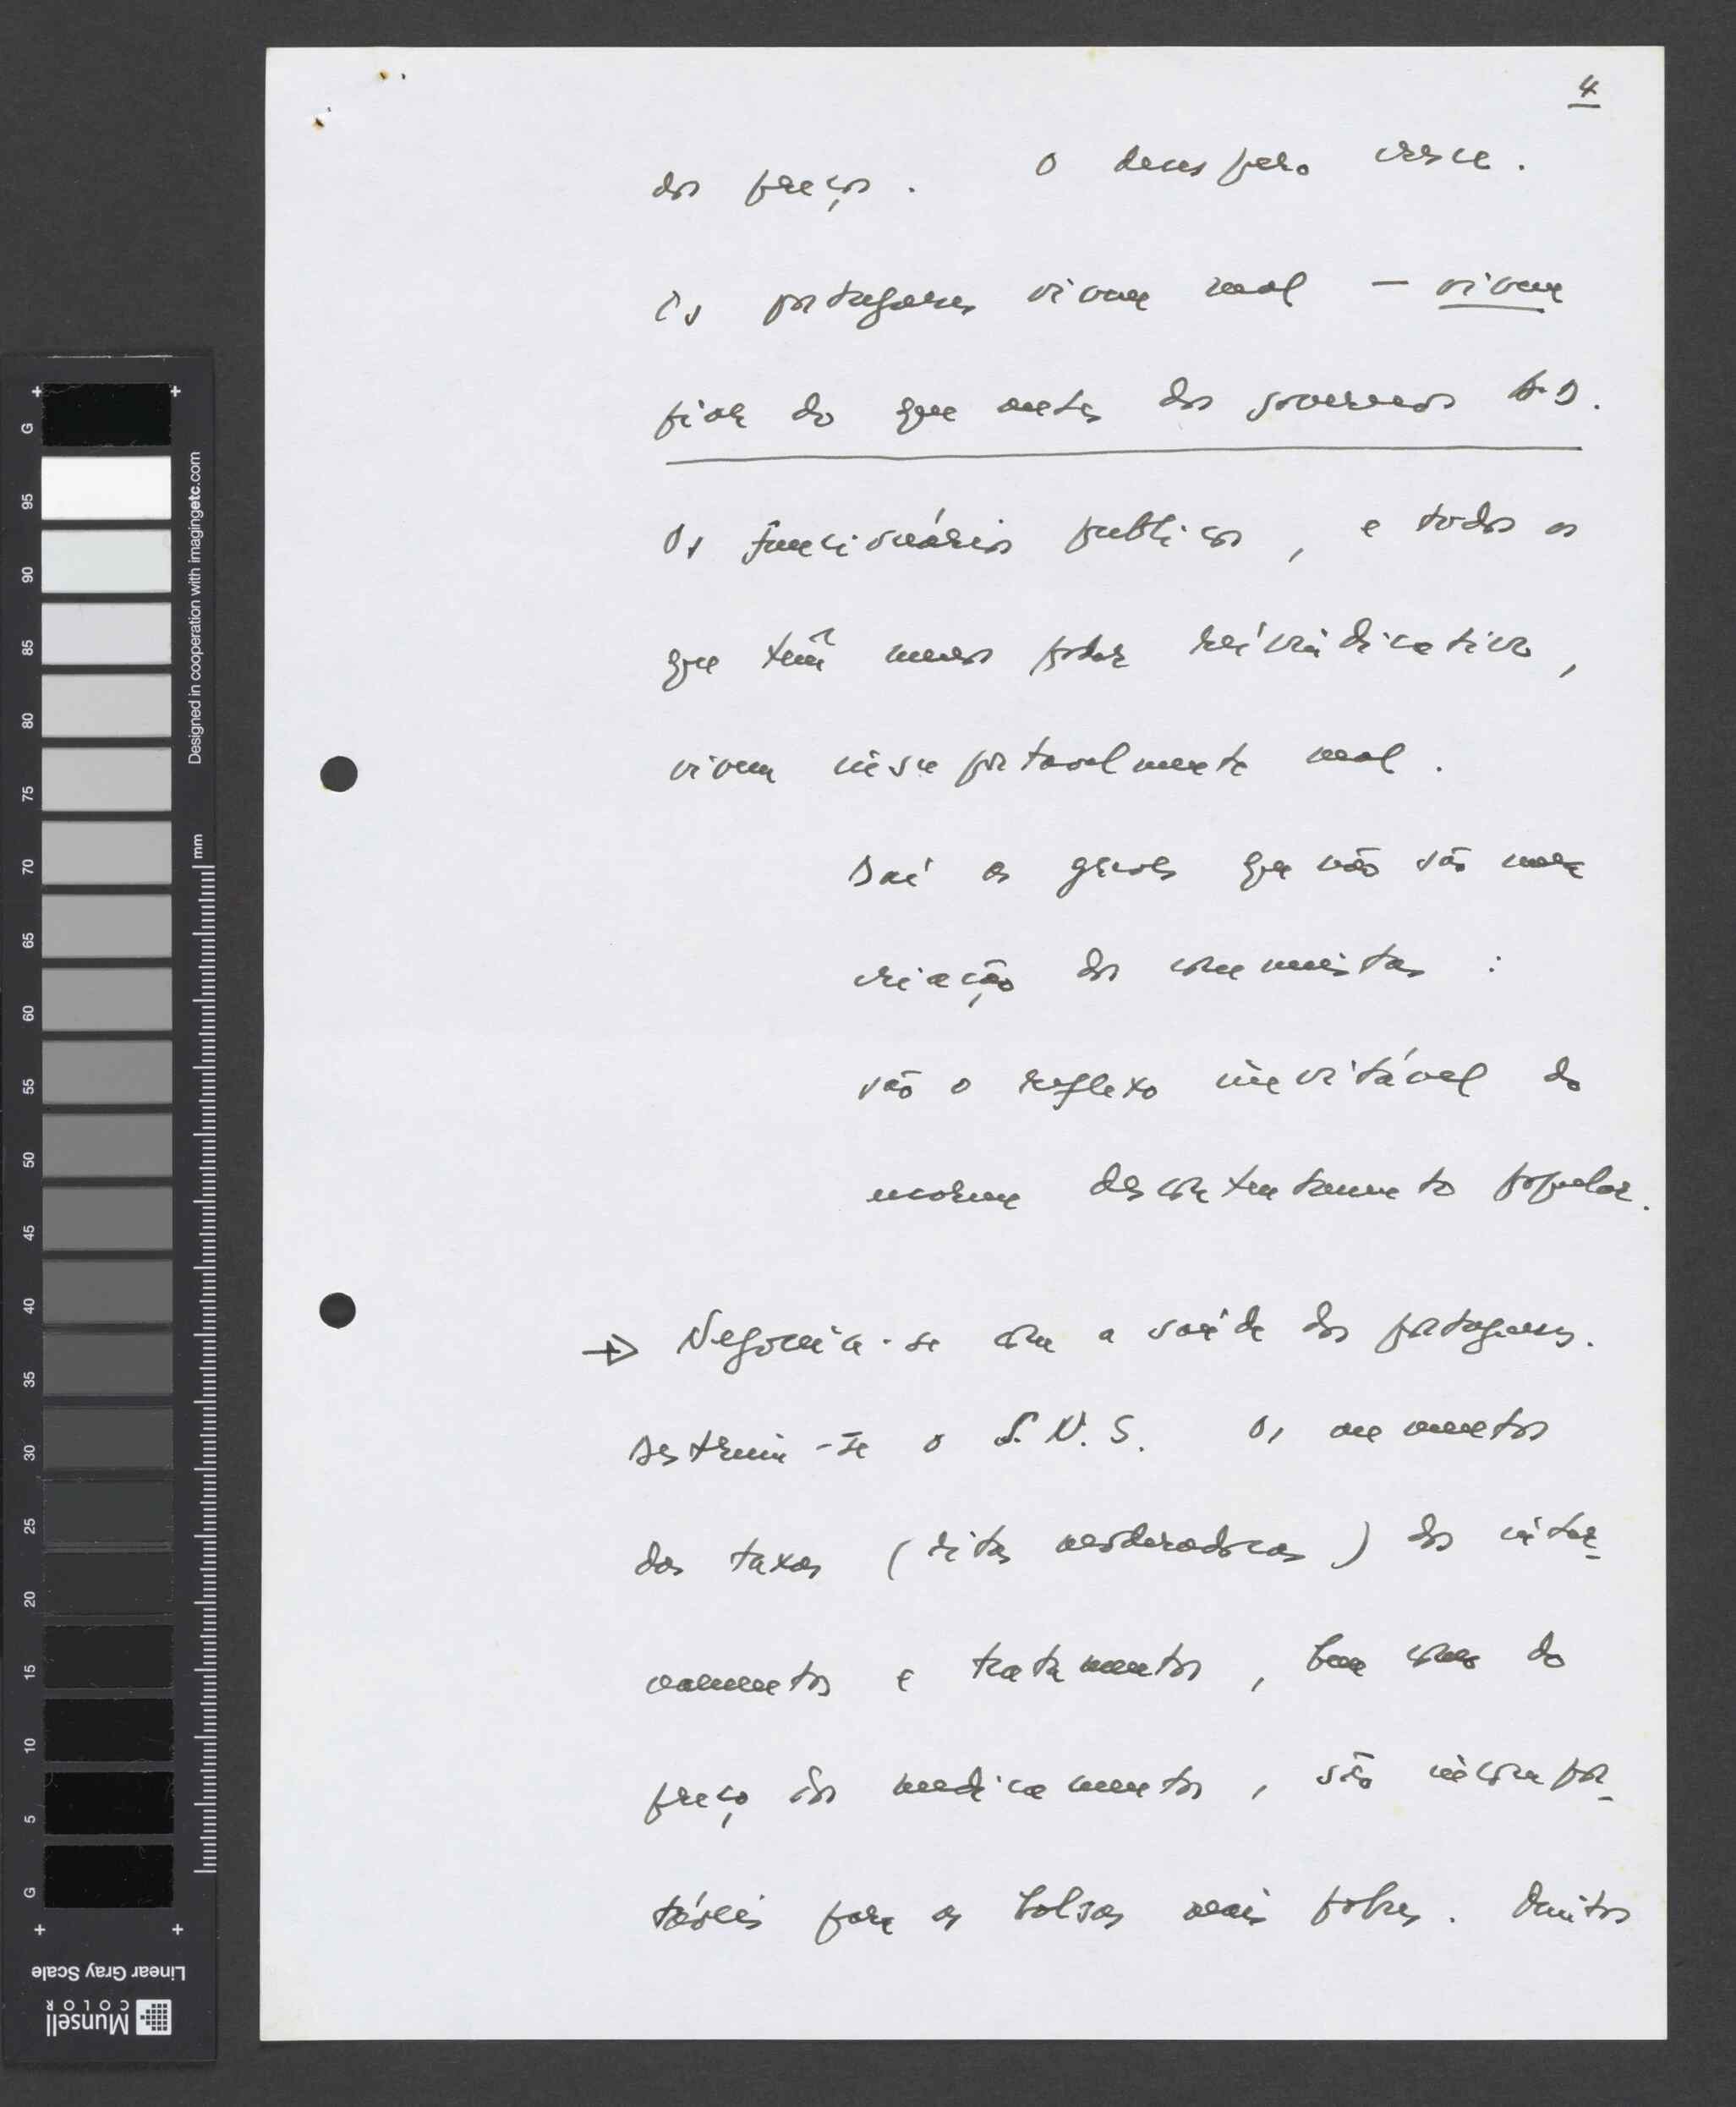 4
dos preços. O desespero cresce.
Os portugueses vivem mal — vivem
pior do que antes dos governos AD.
Os funcionários publicos, e todos os
que têm menos poder reivindicativo,
vivem insuportavelmente mal.
Daí as greves que não são uma
criação dos comunistas:
são o reflexo inevitável do
enorme descontentamento popular.
→ Negoceia-se com a saúde dos portugueses.
Destrui-se o S.N.S. Os aumentos
das taxas (ditas moderadoras) dos inter-
namentos e tratamentos, bem como do
preço dos medicamentos, são incompor-
táveis para as bolsas mais pobres. Muitos
G 95 90 85 80 75 70 65 60 55 50 45 40 35 30 25 20 15 10 5 G
Designed in cooperation with imagingetc.com
mm
Linear Gray Scale
Munsell
COLOR